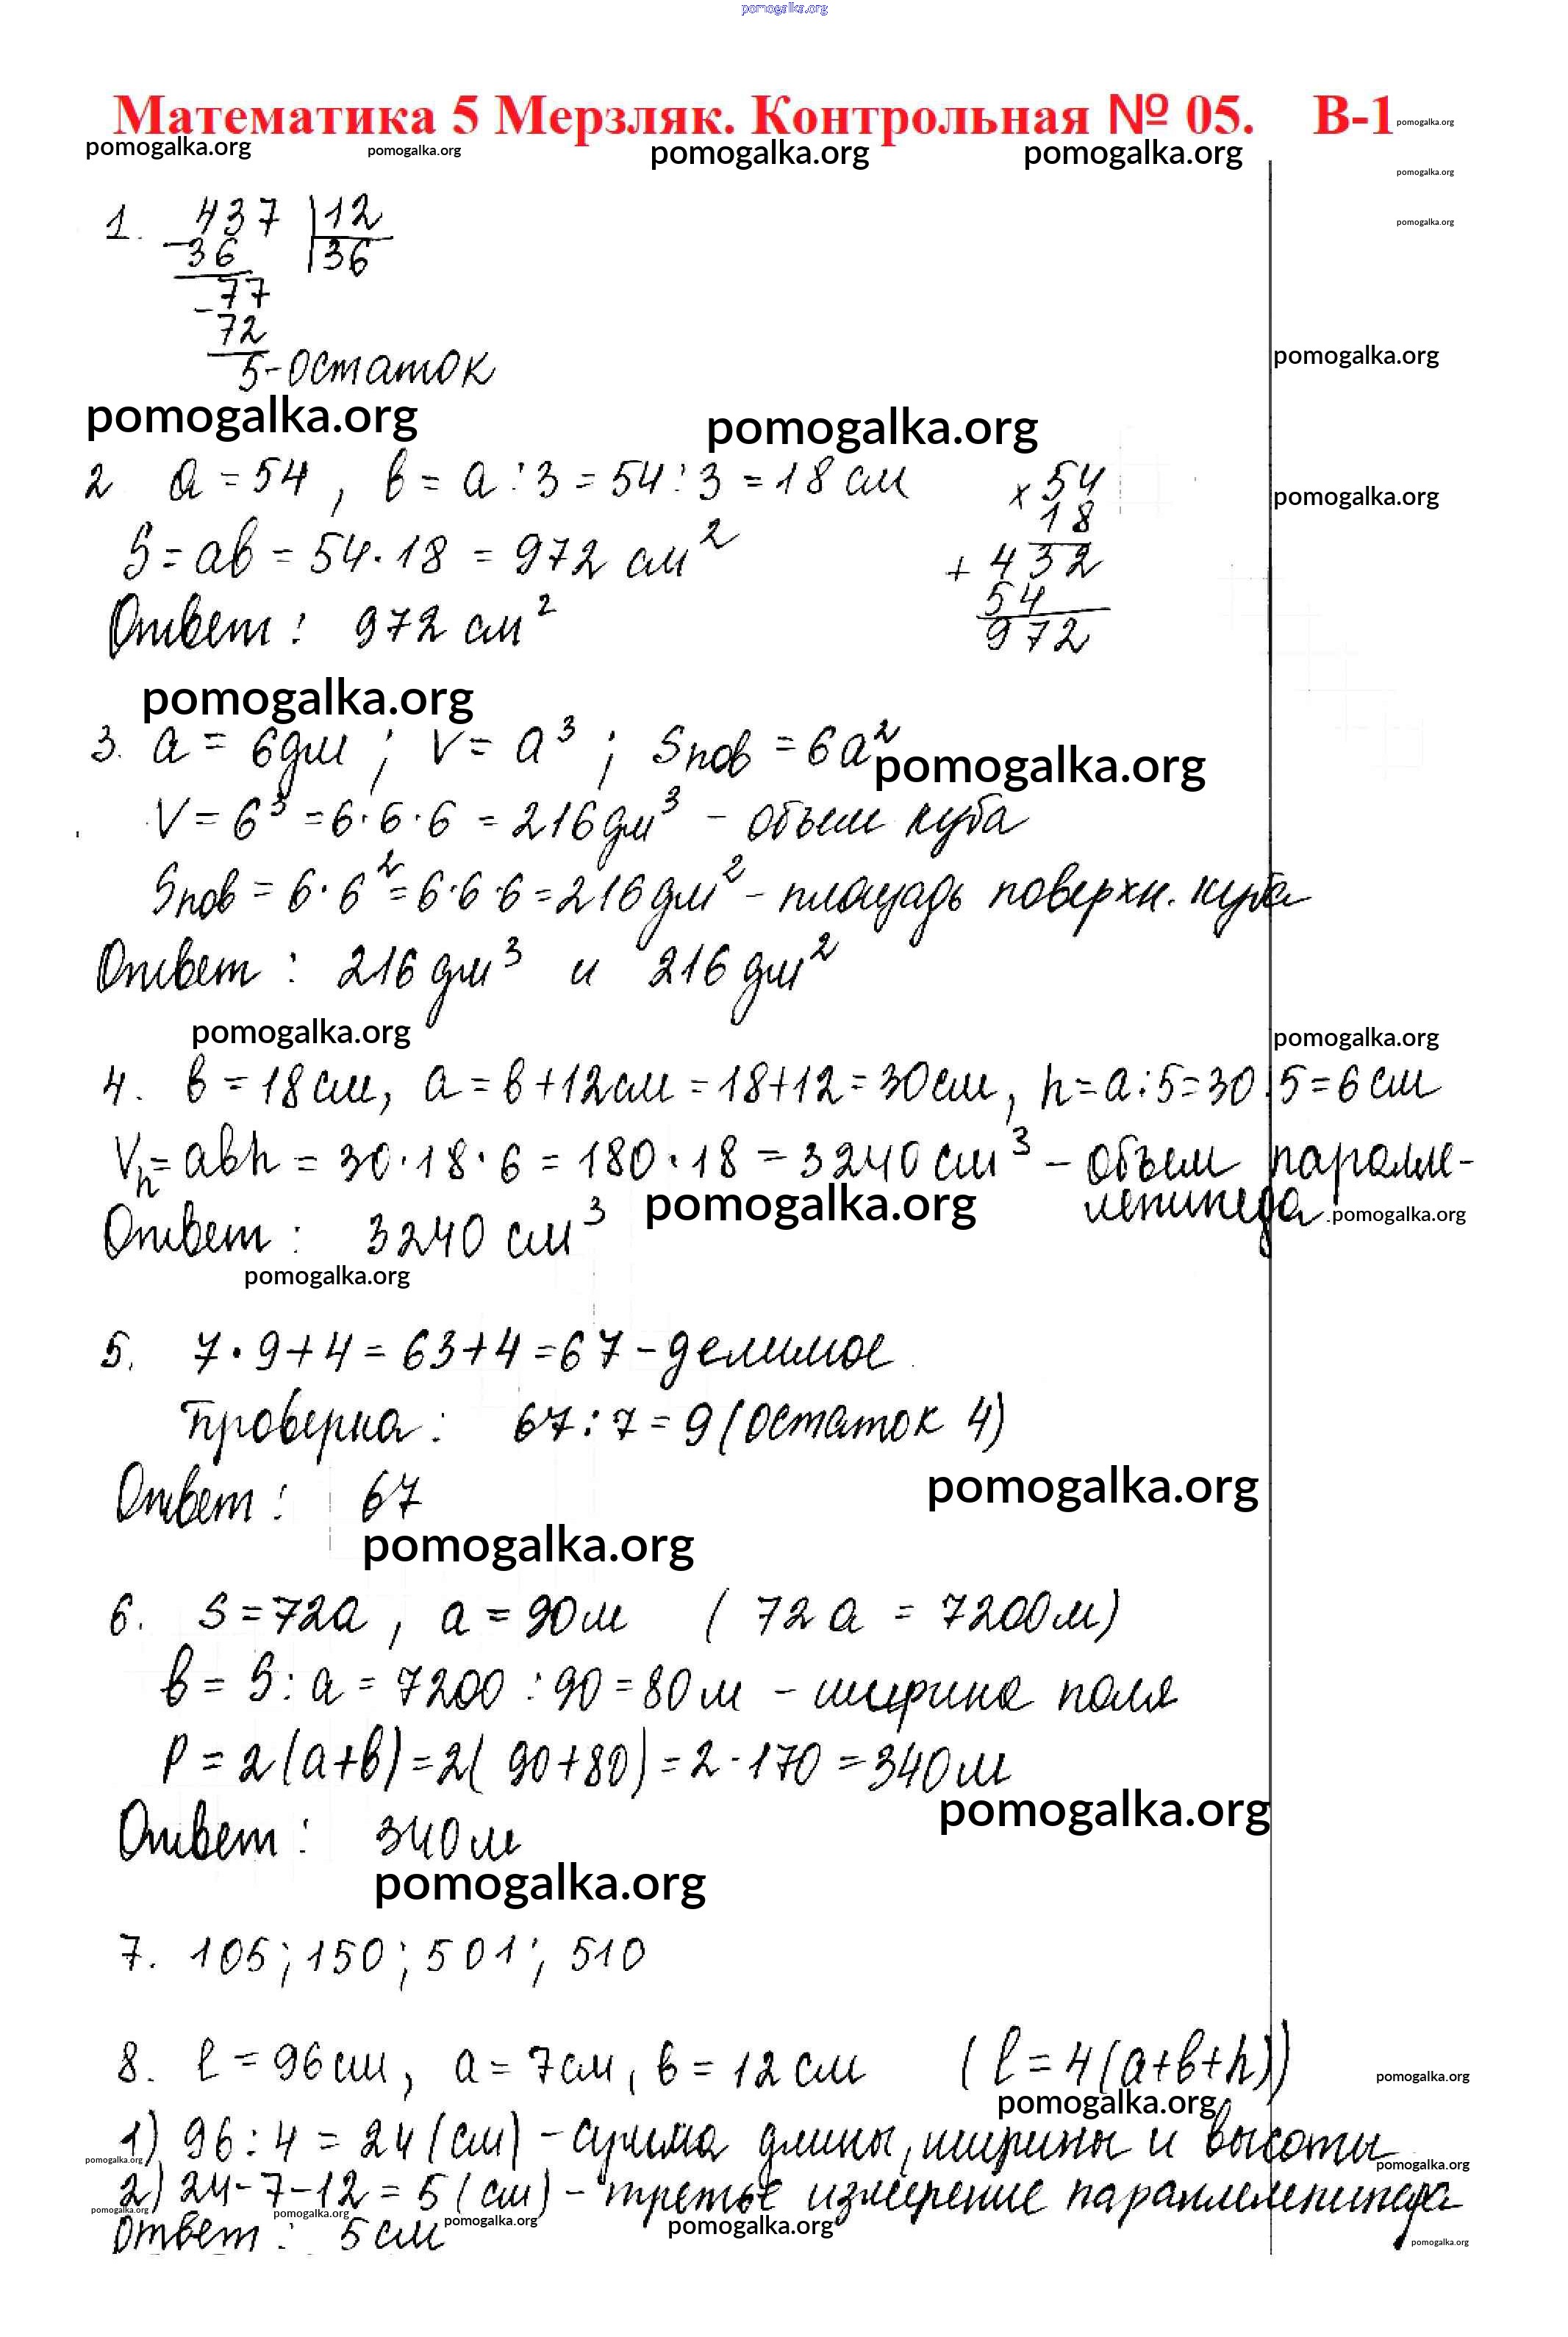 pomogalka.org
Математика 5 Мерзляк. Контрольная № 05. В-1
pomogalka.org
pomogalka.org pomogalka.org pomogalka.org pomogalka.org
pomogalka.org
pomogalka.org
1. 437 |12
- 36 |36
- 77
72
5-остаток
pomogalka.org
pomogalka.org pomogalka.org
2 a = 54, в = a : 3 = 54 : 3 = 18 см × 54
pomogalka.org
18
S = aв = 54 · 18 = 972 см² + 432
54
Ответ : 972 см² 972
pomogalka.org
3. a = 6дм ; V = a³ ; Sпов = 6a²
pomogalka.org
V = 6³ = 6·6·6 = 216 дм³ - объем куба
Sпов = 6·6² = 6·6·6 = 216 дм² - площадь поверхн. куба
Ответ : 216 дм³ и 216 дм²
pomogalka.org pomogalka.org
4. в = 18 см, a = в + 12см = 18+12 = 30см, h = a : 5 = 30 : 5 = 6 см
Vh = aвh = 30 · 18 · 6 = 180 · 18 = 3240 см³ - объем паралле-
лепипеда
pomogalka.org pomogalka.org
Ответ : 3240 см³
pomogalka.org
5. 7 · 9 + 4 = 63 + 4 = 67 - делимое
Проверка : 67 : 7 = 9 (остаток 4)
Ответ : 67
pomogalka.org
pomogalka.org
6. S = 72a, a = 90м ( 72 a = 7200м)
в = S : a = 7200 : 90 = 80 м - ширина поля
P = 2(a+в) = 2( 90+80) = 2 · 170 = 340 м
pomogalka.org
Ответ : 340 м
pomogalka.org
7. 105; 150; 501; 510
8. l = 96 см, a = 7см, в = 12 см (l = 4(a+в+h))
pomogalka.org
pomogalka.org
1) 96 : 4 = 24 (см) - сумма длины, ширины и высоты
pomogalka.org pomogalka.org
2) 24 - 7 - 12 = 5 (см) - третье измерение параллелепипеда
pomogalka.org pomogalka.org pomogalka.org pomogalka.org
Ответ : 5 см
pomogalka.org